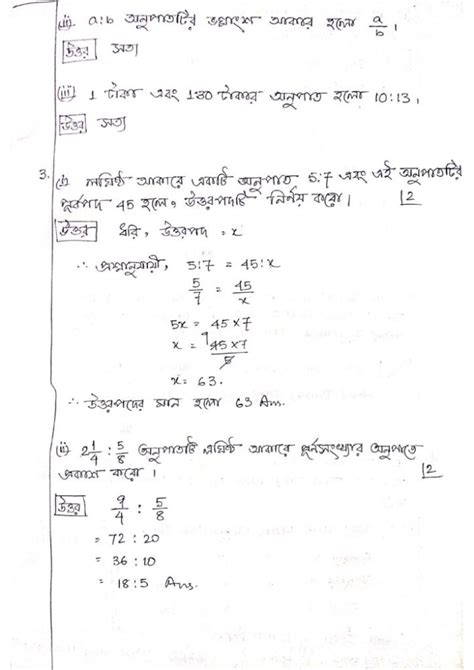 (ii). a:b অনুপাতটির ভগ্নাংশ আকার হলো a/b ।
উত্তর সত্য
(iii) 1 টাকা এবং 130 টাকার অনুপাত হলো 10:13 ।
উত্তর সত্য
3. (i) লঘিষ্ঠ আকারে একটি অনুপাত 5:7 এবং এই অনুপাতটির
পূর্বপদ 45 হলে, উত্তরপদটি নির্ণয় করো। 2
উত্তর ধরি, উত্তরপদ = x
∴ প্রশ্নানুযায়ী, 5:7 = 45:x
5/7 = 45/x
5x = 45×7
x = 9 45×7/5
x = 63.
∴ উত্তরপদের মান হলো 63 Ans.
(ii) 2 1/4 : 5/8 অনুপাতটি লঘিষ্ঠ আকারে পূর্নসংখ্যার অনুপাতে
প্রকাশ করো। 2
উত্তর 9/4 : 5/8
= 72 : 20
= 36 : 10
= 18:5 Ans.